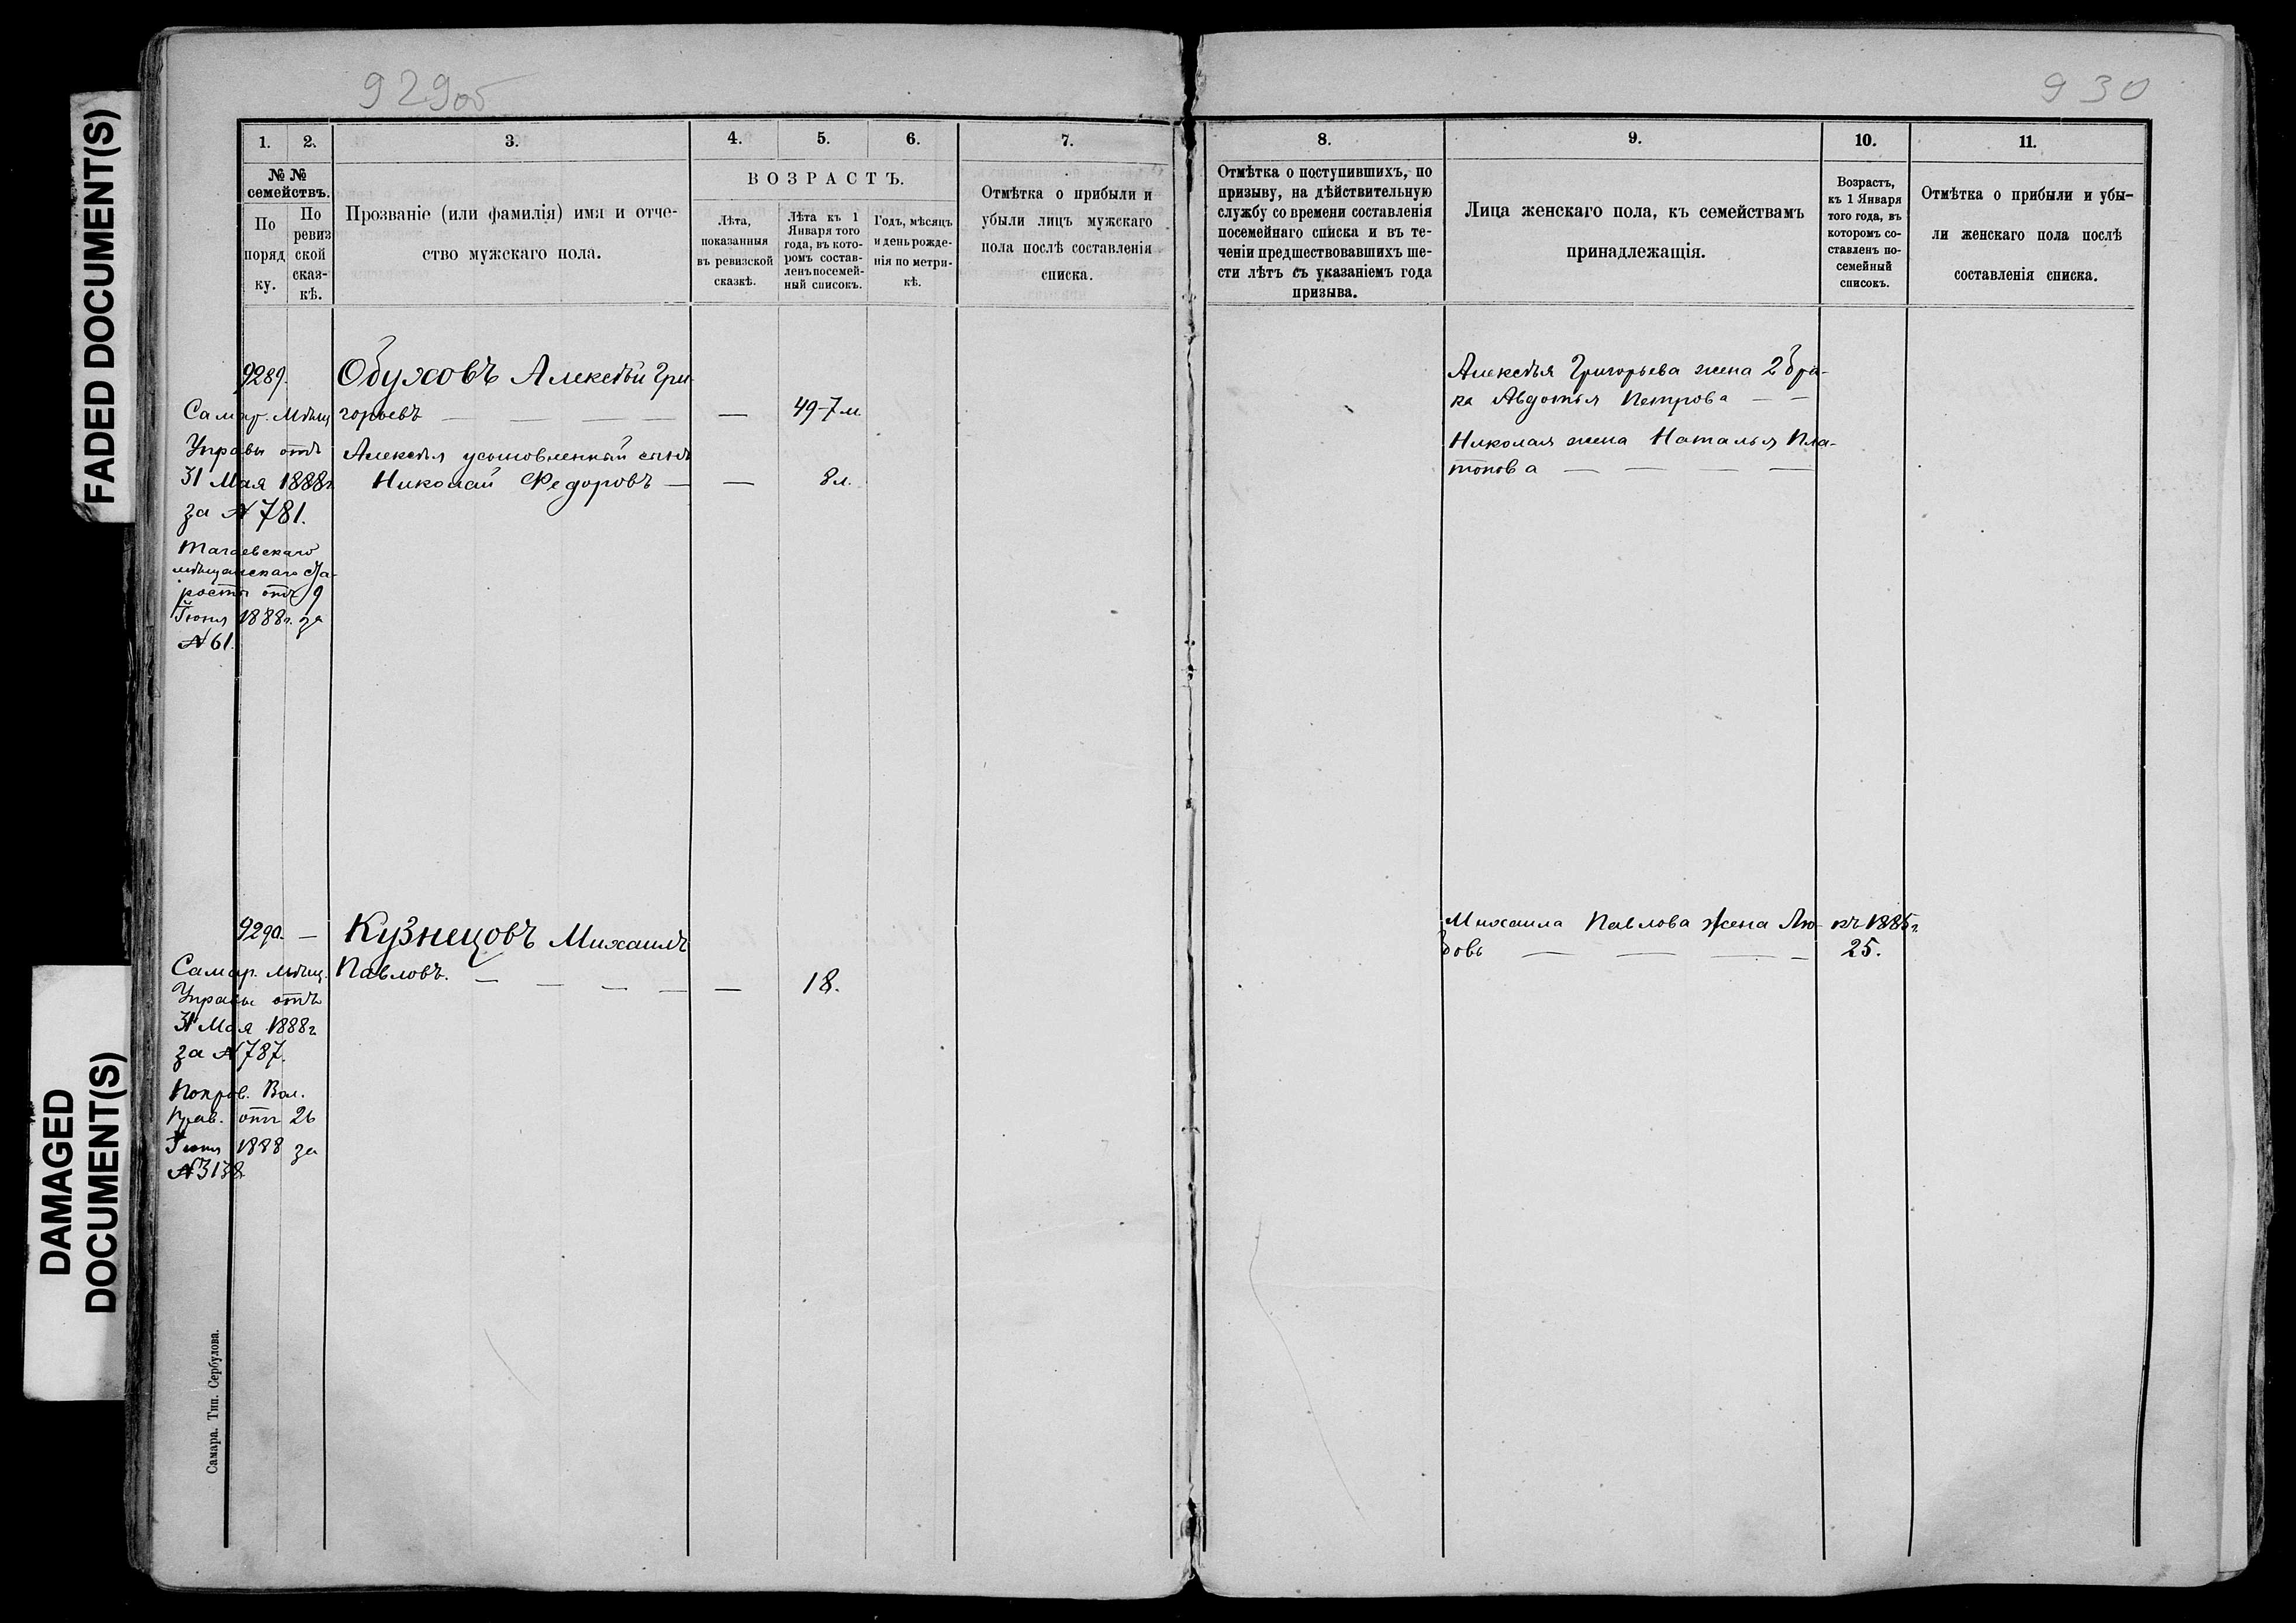 FADED DOCUMENT(S)
DAMAGED
DOCUMENT(S)
929об
930
1.
2.
3.
4.
5.
6.
7.
№ №
семействъ.
По
поряд
ку.
По
ревиз
ской
сказ-
кѣ.
Прозваніе (или фамилія) имя и отче-
ство мужскаго пола.
ВОЗРАСТЪ.
Лѣта,
показанныя
въ ревизской
сказкѣ.
Лѣта къ 1
Января того
года, въ кото-
ромъ состав-
ленъ посемей-
ный списокъ.
Годъ, мѣсяцъ
и день рожде-
нія по метри-
кѣ.
Отмѣтка о прибыли и
убыли лицъ мужскаго
пола послѣ составленія
списка.
8.
9.
10.
11.
Отмѣтка о поступившихъ, по
призыву, на дѣйствительную
службу со времени составленія
посемейнаго списка и въ те-
ченіи предшествовавшихъ ше-
сти лѣтъ съ указаніемъ года
призыва.
Лица женскаго пола, къ семействамъ
принадлежащія.
Возрастъ,
къ 1 Января
того года, въ
которомъ со-
ставленъ по-
семейный
списокъ.
Отмѣтка о прибыли и убы-
ли женскаго пола послѣ
составленія списка.
9289.
Самар. Мѣщ
Управы отъ
31 Мая 1888г
за №781.
Тагаевскаго
мѣщанскаго Ста-
росты отъ 9
Іюня 1888г. за
№61.
Обуховъ Алексѣй Гри-
горьевъ — — — — 49-7м
Алексѣя усыновленный сынъ
Николай Федоровъ — — 8л.
Алексѣя Григорьева жена 2 бра-
ка Авдотья Петрова — —
Николая жена Наталья Пла-
тонова — — — —
9290. —
Самар. Мѣщ.
Управы отъ
31 Мая 1888г
за №787.
Покров. Вол.
Прав. отъ 26
Іюня 1888 за
№3138
Кузнецовъ Михаилъ
Павловъ. — — — — — 18.
Михаила Павлова жена Лю-
бовь — — — —
къ 1885г
25.
Самара. Тип. Сербулова.